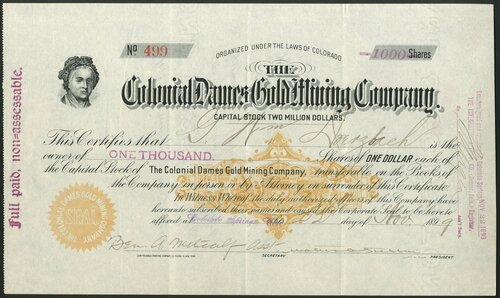 No 499
ORGANIZED UNDER THE LAWS OF COLORADO
1000 Shares
THE
Colonial Dames Gold Mining Company.
CAPITAL STOCK TWO MILLION DOLLARS.
This Certifies that is the
owner of ONE THOUSAND. Shares of ONE DOLLAR each of
the Capital Stock of The Colonial Dames Gold Mining Company, transferable on the Books of
the Company in person or by Attorney on surrender of this Certificate.
In Witness Whereof the duly authorized officers of this Company have
hereunto subscribed their names and caused the Corporate Seal to be hereto
affixed at this 22 day of Nov. 1899
Ben. A. Metcalf Asst
SECRETARY
PRESIDENT
Full paid, non-assessable.
THE COLONIAL DAMES GOLD MINING COMPANY
SEAL